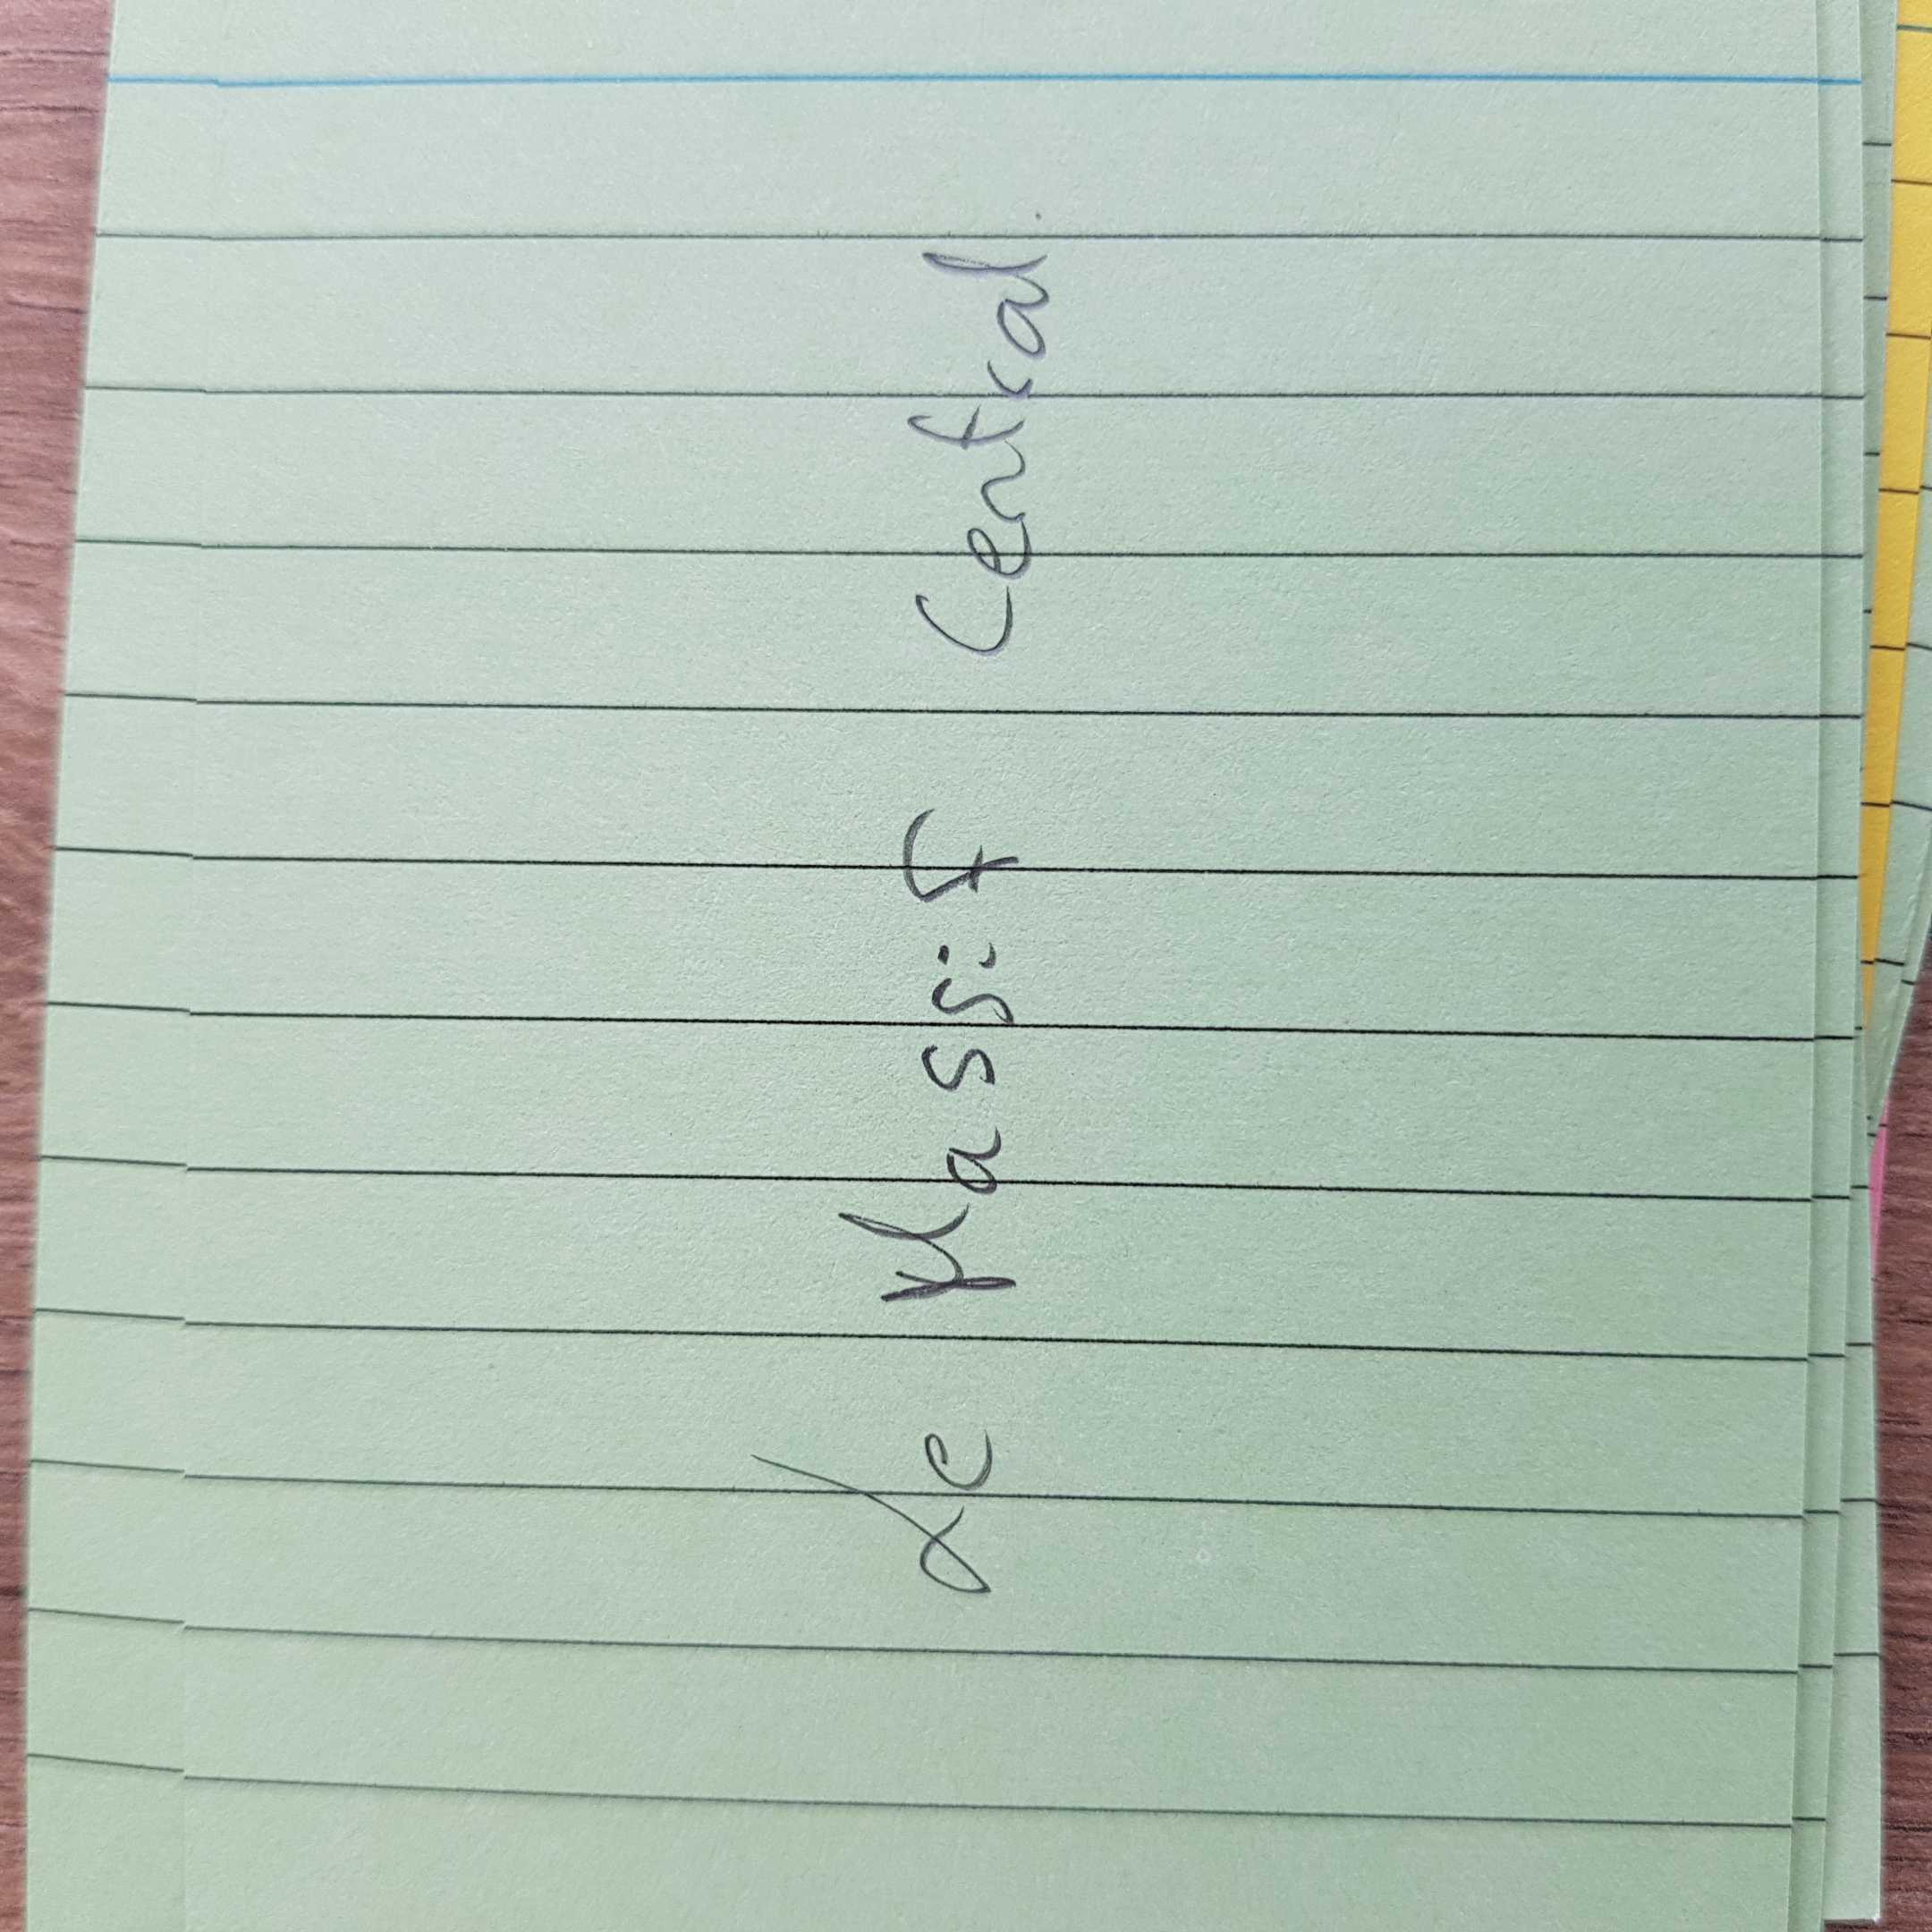 Le Massif Central.